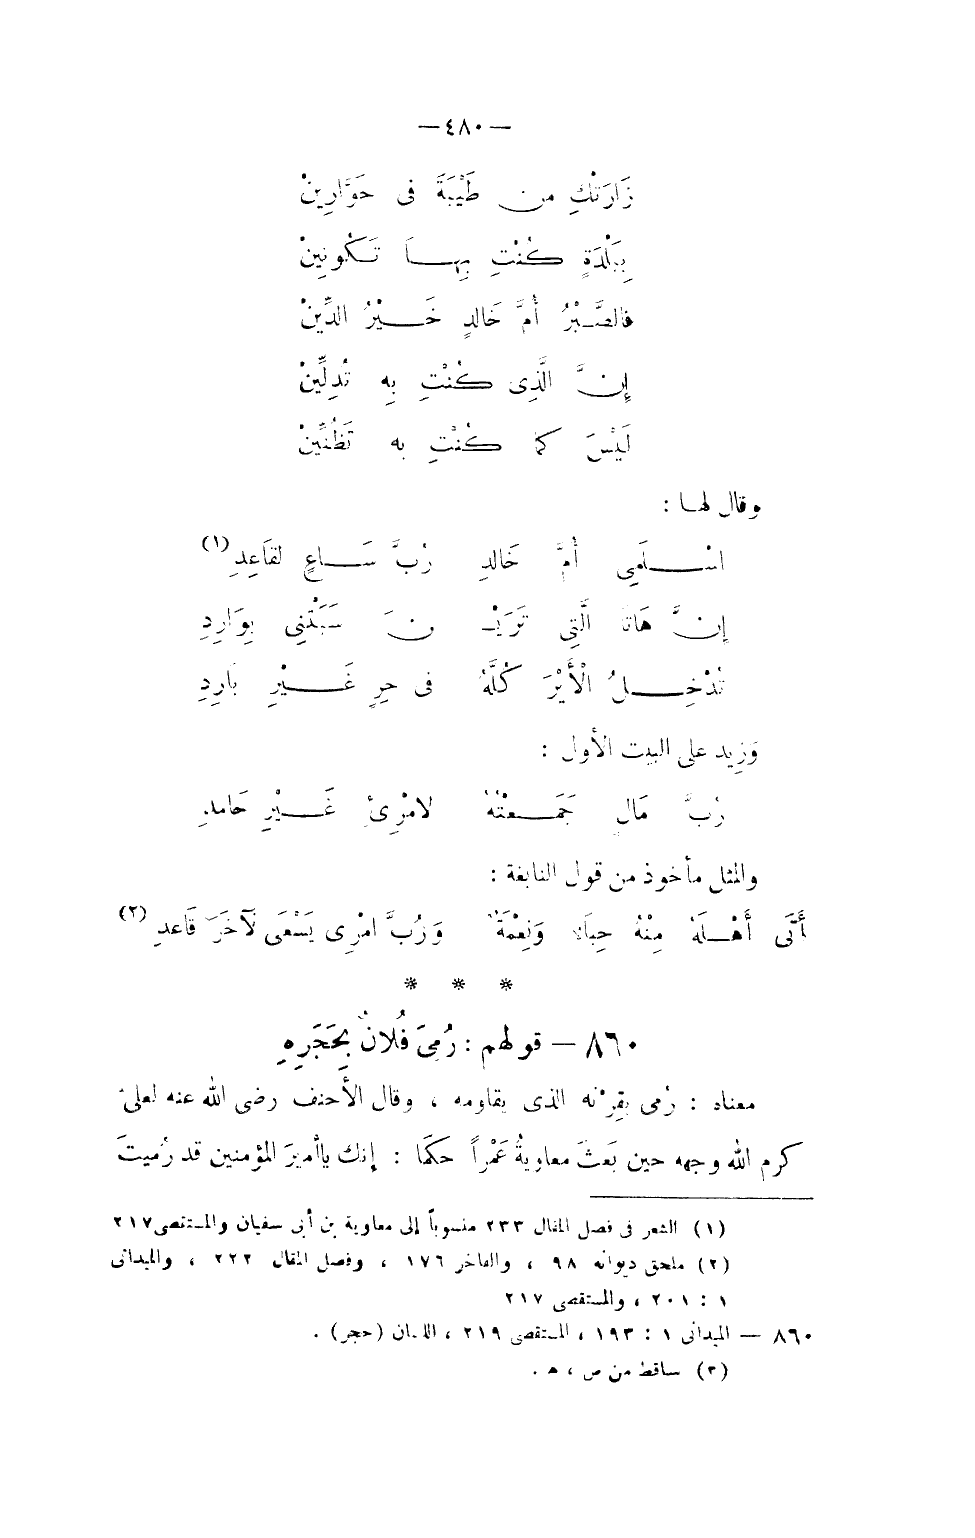 — ٤٨٠ —
زَارَتْكِ من طَيْبَةَ فى حَوَّارِينْ
بِبَلْدَةٍ كُنْتِ بِهَا تَكُونِينْ
فالصَّبْرُ أُمَّ خَالدٍ خَيْرُ الدِّينْ
إِنَّ الَّذِى كُنْتِ بِهِ تُدِلِّينْ
لَيْسَ كَمَا كُنْتِ بِهِ تَظُنِّينْ
وقال لها :
اسْلَمِى أُمَّ خَالدِ رُبَّ سَاعٍ لقَاعِدِ (١)
إِنَّ هَاتَا الَّتِى تَرَيْنَ سَبَتْنِى بِوَارِدِ
تُدْخِلُ الْأَيْرَ كُلَّهُ فى حِرٍ غَيْرِ بَارِدِ
وَزِيد على البيت الأول :
رُبَّ مَالٍ جَمَعْتَهُ لامْرِئٍ غَيْرِ حَامدِ
والمثل مأخوذ من قول النابغة :
أَتَى أَهْلَهُ مِنْهُ حِبَاءٌ وَنِعْمَةٌ وَرُبَّ امْرِئٍ يَسْعَى لآخَرَ قَاعدِ (٢)
* * *
٨٦٠ — قولهم : رُمِىَ فُلانٌ بِحَجَرِهِ
معناه : رُمى بقِرْنه الذى يقاومه ، وقال الأحنف رضى الله عنه لعلىّ
كرم الله وجهه حين بَعثَ معاويةُ عَمْراً حكمًا : إنك ياأميرَ المؤمنين قد رُميتَ
(١) الشعر فى فصل المقال ٢٣٣ منسوباً إلى معاوية بن أبى سفيان والمستقصى ٢١٧
(٢) ملحق ديوانه ٩٨ ، والفاخر ١٧٦ ، وفصل المقال ٢٢٢ ، والميدانى
١ : ٢٠١ ، والمستقصى ٢١٧
٨٦٠ — الميدانى ١ : ١٩٣ ، المستقصى ٢١٩ ، اللسان (حجر) .
(٣) ساقط من ص ، هـ .